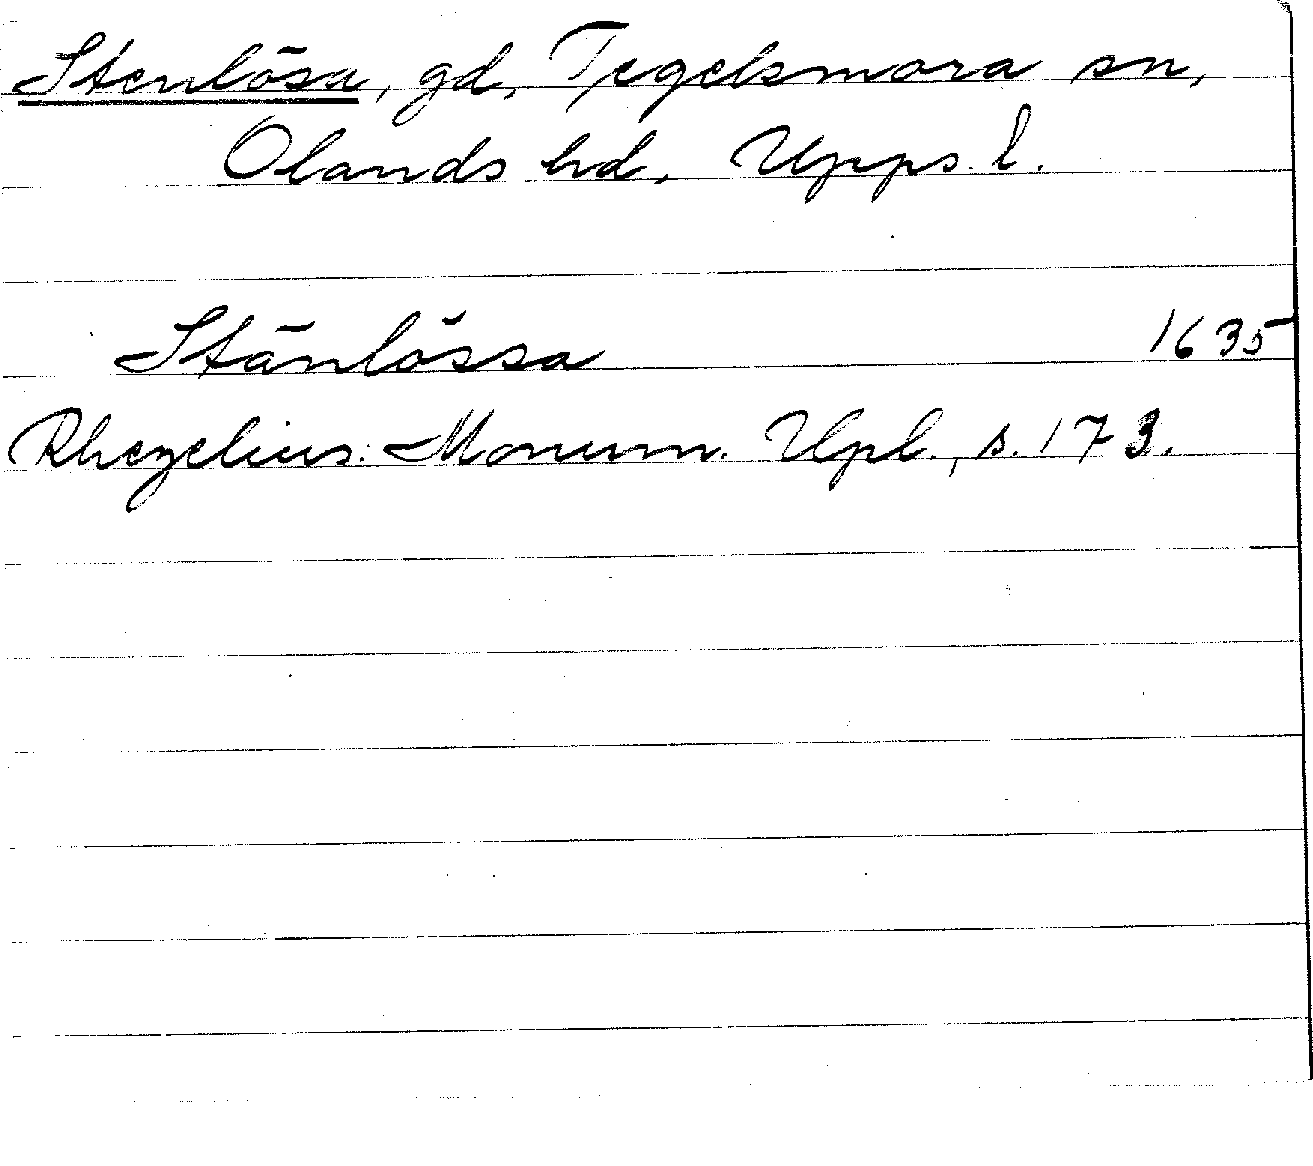 Stenlösa, gd, Tegelsmora sn,
Olands hd, Upps. l.
Stänlössa 1635
Rhezelius: Monum. Upl., s. 173.